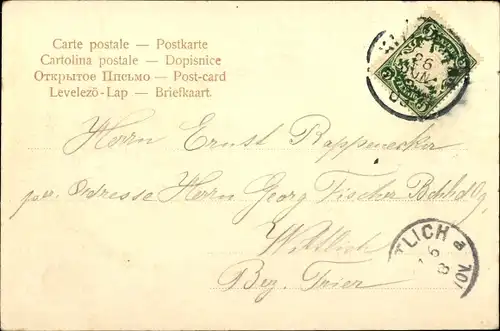 Carte postale — Postkarte
Cartolina postale — Dopisnice
Открытое Письмо — Post-card
Levelezö-Lap — Briefkaart.
Herrn Ernst Rappenecker
per Adresse Herrn Georg Fischer Bchhdlg
Wittlich
Bez. Trier
TLICH